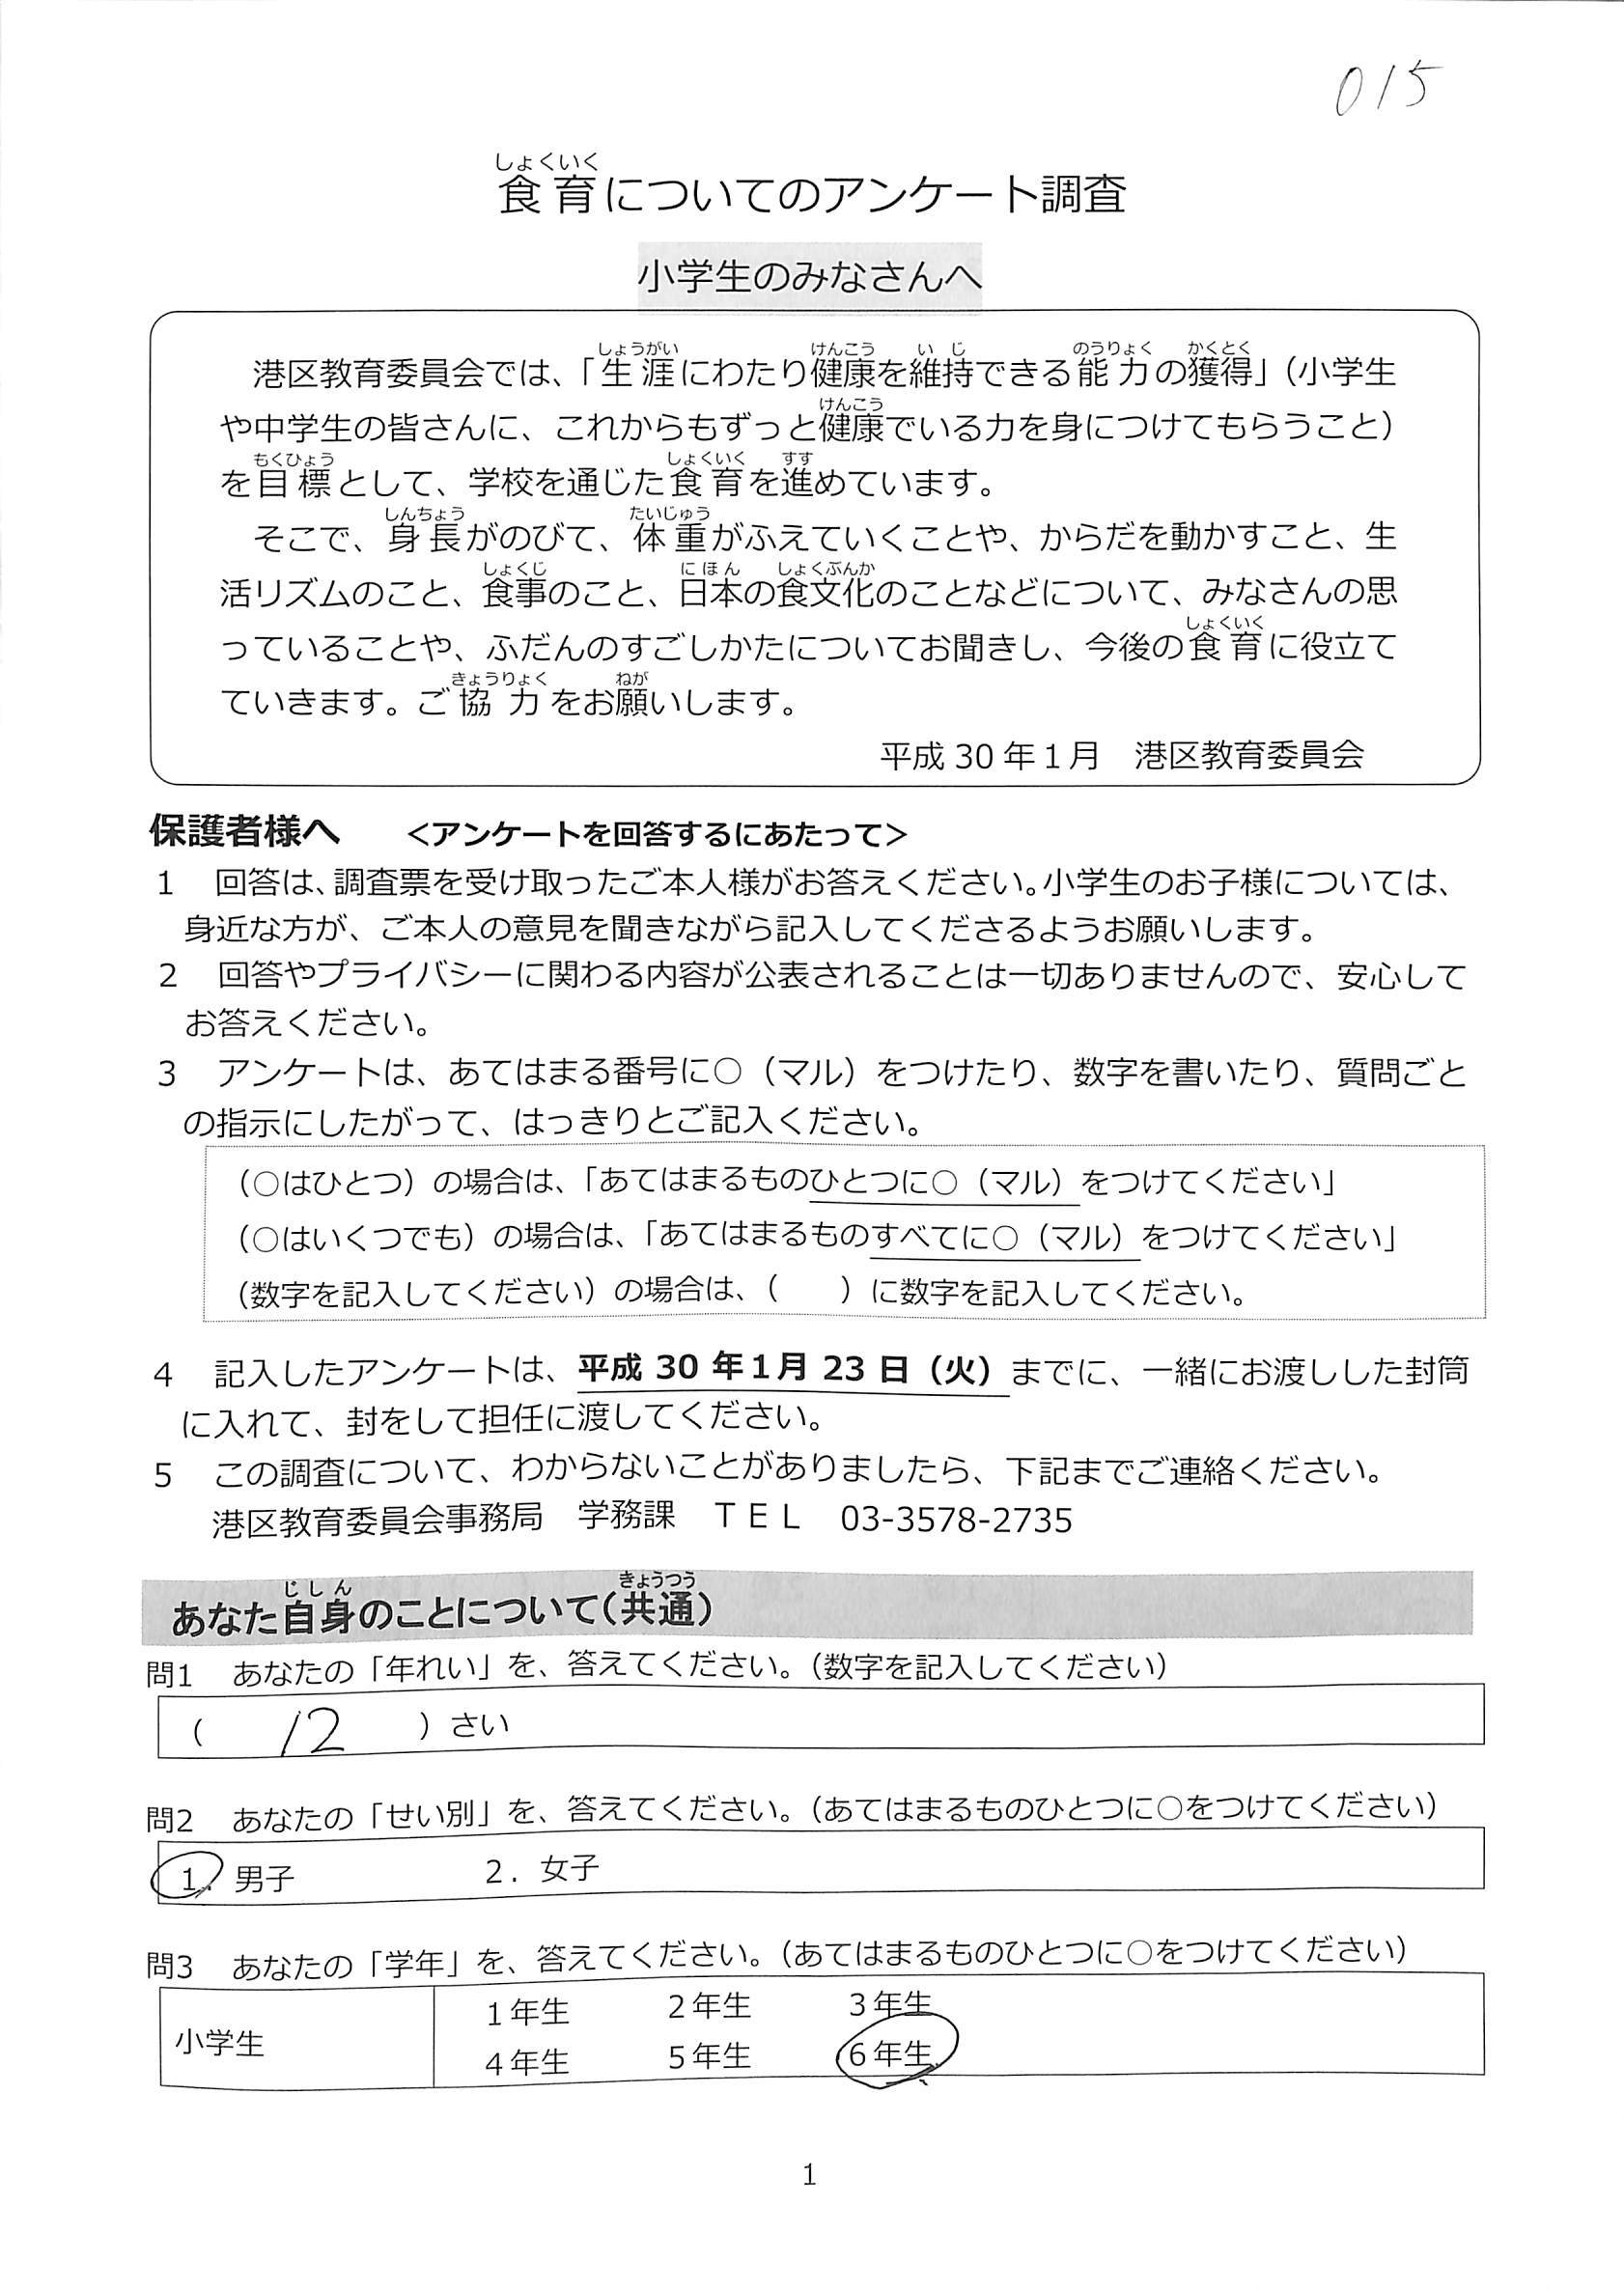 015
食育についてのアンケート調査
小学生のみなさんへ
港区教育委員会では、「生涯にわたり健康を維持できる能力の獲得」（小学生
や中学生の皆さんに、これからもずっと健康でいる力を身につけてもらうこと）
を目標として、学校を通じた食育を進めています。
そこで、身長がのびて、体重がふえていくことや、からだを動かすこと、生
活リズムのこと、食事のこと、日本の食文化のことなどについて、みなさんの思
っていることや、ふだんのすごしかたについてお聞きし、今後の食育に役立て
ていきます。ご協力をお願いします。
平成 30 年１月　港区教育委員会
保護者様へ　＜アンケートを回答するにあたって＞
１　回答は、調査票を受け取ったご本人様がお答えください。小学生のお子様については、
身近な方が、ご本人の意見を聞きながら記入してくださるようお願いします。
２　回答やプライバシーに関わる内容が公表されることは一切ありませんので、安心して
お答えください。
３　アンケートは、あてはまる番号に○（マル）をつけたり、数字を書いたり、質問ごと
の指示にしたがって、はっきりとご記入ください。
（○はひとつ）の場合は、「あてはまるものひとつに○（マル）をつけてください」
（○はいくつでも）の場合は、「あてはまるものすべてに○（マル）をつけてください」
（数字を記入してください）の場合は、（　　）に数字を記入してください。
４　記入したアンケートは、平成 30 年１月 23 日（火）までに、一緒にお渡しした封筒
に入れて、封をして担任に渡してください。
５　この調査について、わからないことがありましたら、下記までご連絡ください。
港区教育委員会事務局　学務課　ＴＥＬ　03-3578-2735
あなた自身のことについて（共通）
問1　あなたの「年れい」を、答えてください。（数字を記入してください）
（　12　）さい
問2　あなたの「せい別」を、答えてください。（あてはまるものひとつに○をつけてください）
１．男子　２．女子
問3　あなたの「学年」を、答えてください。（あてはまるものひとつに○をつけてください）
小学生
１年生　２年生　３年生
４年生　５年生　６年生
1